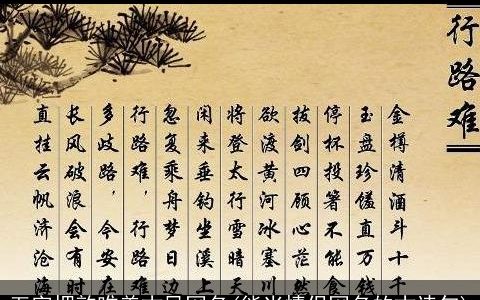 行路难
金樽清酒斗十千
玉盘珍馐直万钱
停杯投箸不能食
拔剑四顾心茫然
欲渡黄河冰塞川
将登太行雪暗天
闲来垂钓坐溪上
忽复乘舟梦日边
行路难，行路难
多歧路，今安在
长风破浪会有时
直挂云帆济沧海
押韵唯美古风网名(能当情侣网名的古诗句)